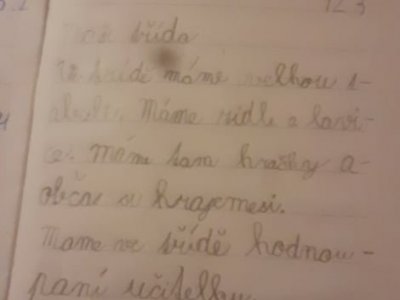 třída
třídě máme velkou s-
Máme židle a lavi-
ce. máme tam hračky a
občas si hrajemesi.
Mame ve třídě hodnou-
paní učitelku